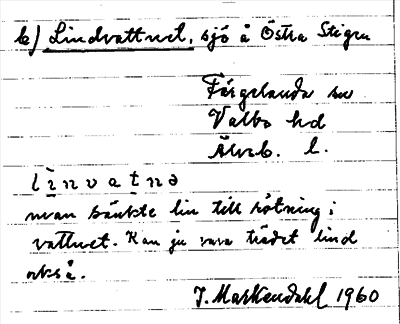 b) Lindvattnet, sjö å Östra Stigen
Färgelanda sn
Valbo hd
Älvsb. l.
lìnvatnə
man sänkte lin till rötning i
vattnet. Kan ju vara trädet lind
också.
J. Markendahl 1960